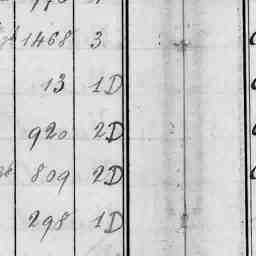 1468 3
13 1D
920 2D
809 2D
298 1D